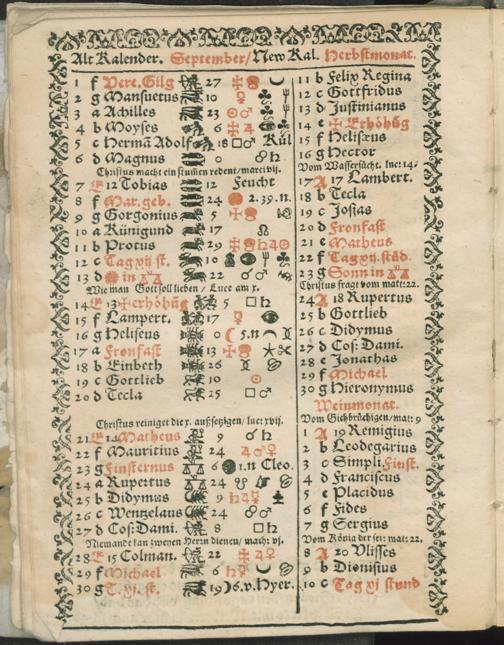 Alt Kalender. September/ New Kal. Herbstmonat.
1 f Vere. Gilg 27
2 g Mansuetus 10
3 a Achilles 23
4 b Moyses 6
5 c Hermã Adolf 18 □♂ Kül
6 d Magnus 0 ☍♄
Christus macht ein stum̃en redent/marc:vij.
7 E 12 Tobias 12 Feucht
8 f Mar. geb. 24 2.39.n.
9 g Gorgonius 5
10 a Künigund 17
11 b Protus 29
12 c Tag xij st. 10
13 d in ♎ 22
Wie man Gott soll lieben/ Luce am x.
14 E 13 ✠ erhöhũg 5 □♄
15 f Lampert. 17
16 g Heliseus 0 5.n
17 a Fronfast 13
18 b Einbeth 26
19 c Gottlieb 10
20 d Tecla 25
Christus reiniget die x. aussetzigen/ luc: xvij.
21 E 14 Matheus 9 ♂♄
22 f Mauritius 24
23 g Finsternus 6 1.n Cleo.
24 a Rupertus 24
25 b Didymus 9
26 c Wentzelaus 24
27 d Cos: Dami. 8 □♄
Niemandt kan zweyen Herrn dienen/ math: vj.
28 E 15 Colman. 22
29 f Michael 6
30 g T. xj. st. 19 6.v. Hyer.
11 b Felix Regina
12 c Gottfridus
13 d Justinianus
14 e ✠ Erhöhũg
15 f Heliseus
16 g Hector
Vom Wassersücht. luc: 14.
17 A 17 Lambert.
18 b Tecla
19 c Josias
20 d Fronfast
21 e Matheus
22 f Tag xij. stüd.
23 g Sonn in ♎
Christus fragt vom matt: 22.
24 A 18 Rupertus
25 b Gottlieb
26 c Didymus
27 d Cos: Dami.
28 e Jonathas
29 f Michael
30 g Hieronymus
Weinmonat.
Vom Gichbrüchigen/ mat: 9
1 A 19 Remigius
2 b Leodegarius
3 c Simpli. Finst.
4 d Franciscus
5 e Placidus
6 f Fides
7 g Sergius
Vom König der sei: mat: 22.
8 A 20 Vlisses
9 b Dionisius
10 c Tag xj stund